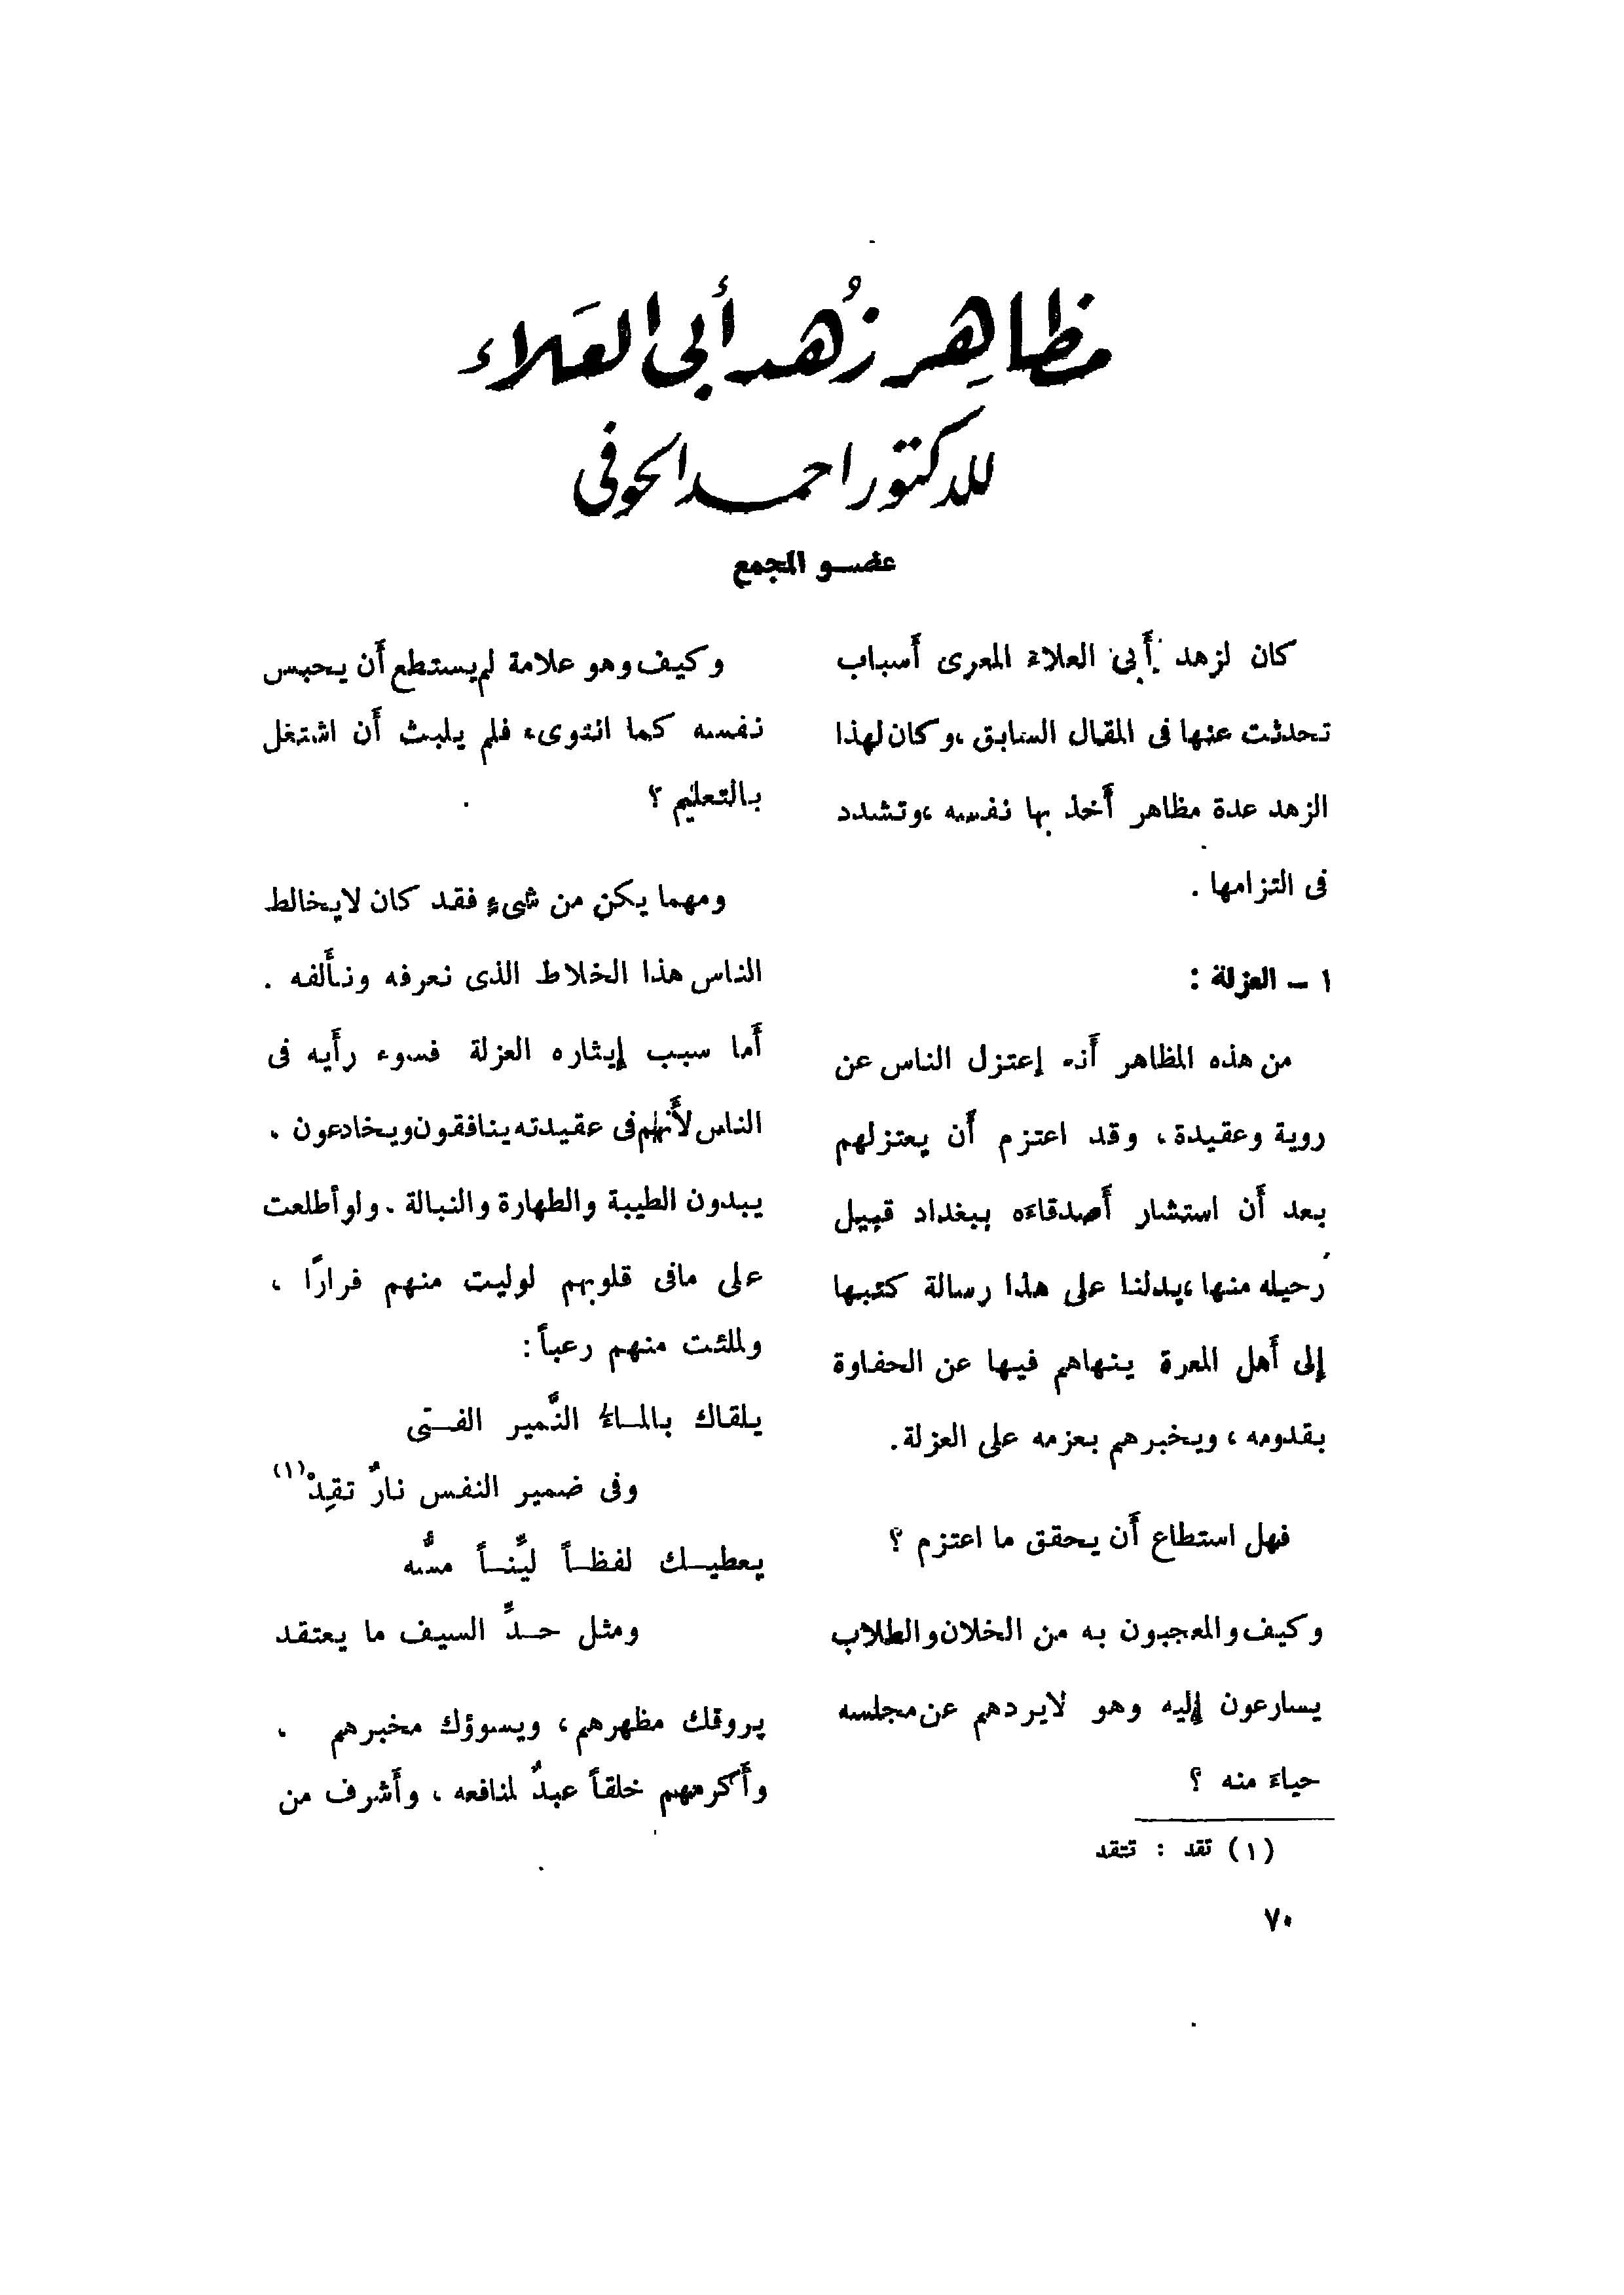 مظاهِر زُهد أبى العَلاء
للدكتور احمد الحوفى
عضو المجمع
كان لزهد أَبى العلاء المعرى أَسباب
تحدثت عنها فى المقال السابق ،وكان لهذا
الزهد عدة مظاهر أَخذ بها نفسه ،وتشدد
فى التزامها .
١ – العزلة :
من هذه المظاهر أَنه إعتزل الناس عن
روية وعقيدة، وقد اعتزم أَن يعتزلهم
بعد أَن استشار أَصدقاءَه ببغداد قبيل
رحيله منها ،يدلنا على هذا رسالة كتبها
إلى أَهل المعرة ينهاهم فيها عن الحفاوة
بقدومه ، ويخبرهم بعزمه على العزلة.
فهل استطاع أَن يحقق ما اعتزم ؟
وكيف والمعجبون به من الخلان والطلاب
يسارعون إليه وهو لايردهم عن مجلسه
حياءَ منه ؟
وكيف وهو علامة لم يستطع أَن يحبس
نفسه كما انتوىء فلم يلبث أَن اشتغل
بالتعليم ؟
ومهما يكن من شىءٍ فقد كان لايخالط
الناس هذا الخلاط الذى نعرفه ونأَلفه .
أَما سبب إيثاره العزلة فسوء رأَيه فى
الناس لأَنهم فى عقيدته ينافقون ويخادعون ،
يبدون الطيبة والطهارة والنبالة . ولو أطلعت
على مافى قلوبهم لوليت منهم فرارًا ،
ولملئت منهم رعباً :
يلقاك بالماءِ النَّمير الفتى
وفى ضمير النفس نارٌ تقِدْ (١)
يعطيك لفظاً ليِّناً مسُّه
ومثل حدِّ السيف ما يعتقد
يروقك مظهرهم ، ويسوؤك مخبرهم ،
وأَكرمهم خلقاً عبدٌ لمنافعه ، وأَشرف من
(١) تقد : تتقد
٧٠